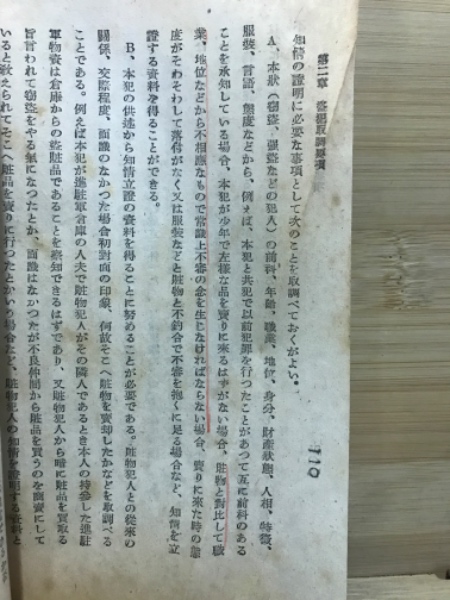 第二章 各犯取調要項
一一〇
知情の證明に必要な事項として次のことを取調べておくがよい。
A、本犯(窃盜、强盜などの犯人)の前科、年齡、職業、地位、身分、財產狀態、人相、特徵、
服裝、言語、態度などから、例えば、本犯と共犯で以前犯罪を行つたことがあつて互に前科のある
ことを承知している場合、本犯が少年で左樣な品を賣りに來るはずがない場合、賍物と對比して職
業、地位などから不相應なもので常識上不審の念を生じなければならない場合、賣りに來た時の態
度がそわそわして落付がなく又は服裝などと賍物と不釣合で不審を抱くに足る場合など、知情を立
證する資料を得ることができる。
B、本犯の供述から知情立證の資料を得ることに努めることが必要である。賍物犯人との從來の
關係、交際程度、面識のなかつた場合初對面の印象、何故そこへ賍物を賣却したかなどを取調べる
ことである。例えば本犯が進駐軍倉庫の人夫で賍物犯人がその隣人であるとき本人の持參した進駐
軍物資は倉庫からの盜賍品であることを察知できるはずであり、又賍物犯人から暗に賍品を買取る
旨言われて窃盜をやる氣になつたとか、面識はなかつたが不良仲間から賍品を買うのを商賣にして
いると敎えられてそこへ賍品を賣りに行つたとかいう場合など、賍物犯人の知情を證明する資料と